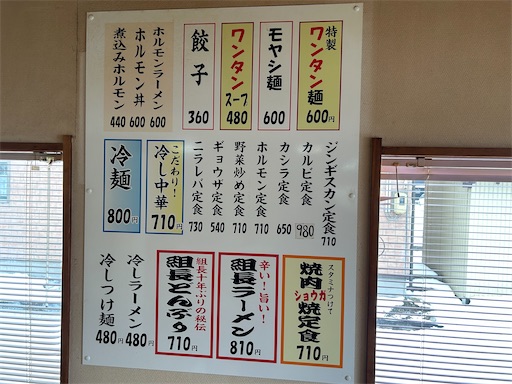 特製
ワンタン麺
600円
モヤシ麺
600
ワンタン
スープ
480
餃子
360
ホルモンラーメン
600
ホルモン丼
600
煮込みホルモン
440
ジンギスカン定食
710
カルビ定食
980
カシラ定食
650
ホルモン定食
710
野菜炒め定食
710
ギョウザ定食
540
ニラレバ定食
730
こだわり!
冷し中華
710円
冷麺
800円
スタミナつけて
焼肉
ショウガ
焼定食
710円
辛い!旨い!
組長ラーメン
810円
組長十年ぶりの秘伝
組長どんぶり
710円
冷しラーメン
480円
冷しつけ麺
480円